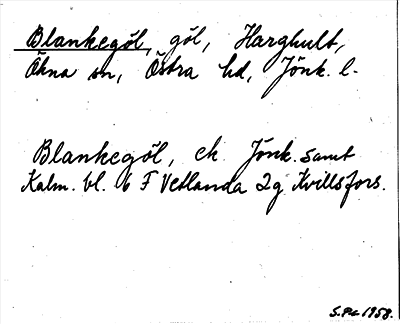 Blankegöl, göl, Harghult,
Ökna sn, Östra hd, Jönk. l.
Blankegöl, ek Jönk. samt
Kalm. bl. 6 F Vetlanda 2g Kvillsfors.
S.Pn 1958.